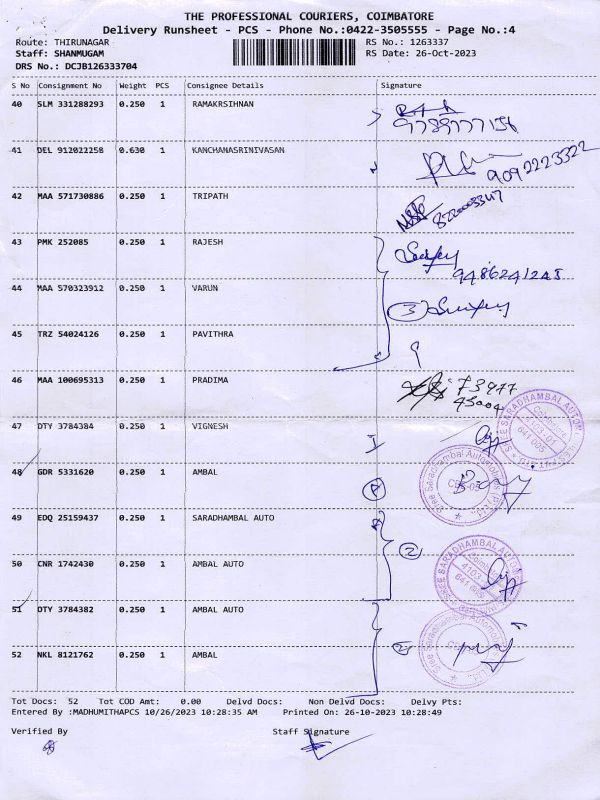 THE PROFESSIONAL COURIERS, COIMBATORE
Delivery Runsheet - PCS - Phone No.:0422-3505555 - Page No.:4
Route: THIRUNAGAR RS No.: 1263337
Staff: SHANMUGAM RS Date: 26-Oct-2023
DRS No.: DCJB126333704
S No Consignment No Weight PCS Consignee Details Signature
40 SLM 331288293 0.250 1 RAMAKRSIHNAN
41 DEL 912022258 0.630 1 KANCHANASRINIVASAN
9092223322
42 MAA 571730886 0.250 1 TRIPATH
43 PMK 252085 0.250 1 RAJESH
9486241248
44 MAA 570323912 0.250 1 VARUN
3
45 TRZ 54024126 0.250 1 PAVITHRA
46 MAA 100695313 0.250 1 PRADIMA
73977
45004
47 DTY 3784384 0.250 1 VIGNESH
48 GDR 5331620 0.250 1 AMBAL
49 EDQ 25159437 0.250 1 SARADHAMBAL AUTO
2
50 CNR 1742430 0.250 1 AMBAL AUTO
51 DTY 3784382 0.250 1 AMBAL AUTO
52 NKL 8121762 0.250 1 AMBAL
Tot Docs: 52 Tot COD Amt: 0.00 Delvd Docs: Non Delvd Docs: Delvy Pts:
Entered By :MADHUMITHAPCS 10/26/2023 10:28:35 AM Printed On: 26-10-2023 10:28:49
Verified By Staff Signature